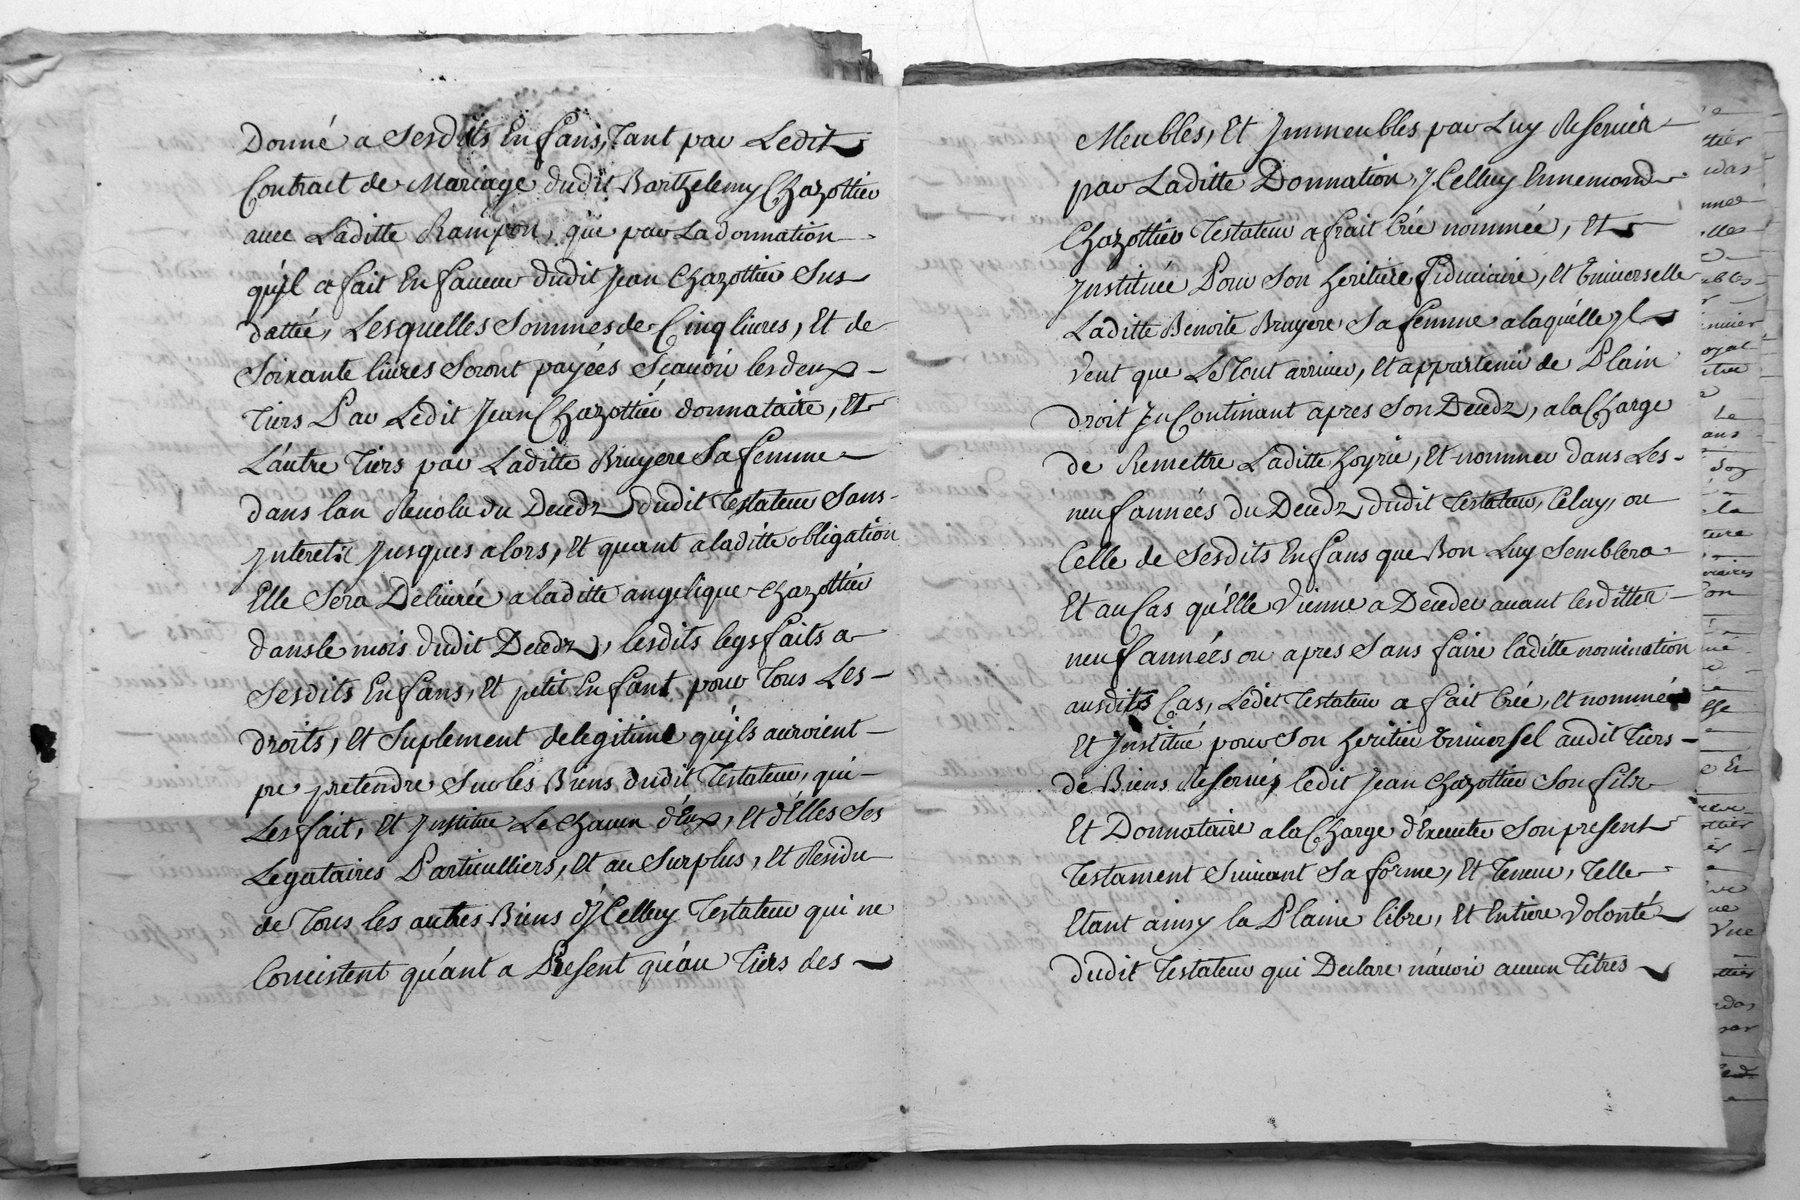 Donné a Sesdits Enfans, Tant par Ledit
Contract de Mariage dudit Barthelemy Chazottier
avec Laditte Rampon, que par La donnation
qu'jl a fait En faveur dudit Jean Chazottier Sus
dattée, Lesquelles Sommes de Cinq livres, Et de
Soixante livres Seront payées Scavoir les deux
Tiers Par Ledit Jean Chazottier donnataire, Et
L'autre Tiers par Laditte Bruyere Sa femme
dans lan Revolu du Decedz dudit Testateur Sans
Jnterets Jusques alors, Et quant a laditte obligation
Elle Sera Delivrée a laditte angelique Chazottier
dans le mois dudit Decedz, lesdits legs faits a
Sesdits Enfans, Et petit Enfant pour Tous Les
droits, Et Suplement de legitime qu'jls auroient
pu pretendre Sur les Biens dudit Testateur, qui
Les fait, Et Jnstitue Le chacun d'Eux, Et d'Elles Ses
Legataires Particulliers, Et au Surplus, Et Residu
de Tous les autres Biens d'JCelluy Testateur qui ne
Concistent qu'ant a Present qu'au Tiers des
Meubles, Et Jmmeubles par Luy Reservés
par Laditte Donnation, JCelluy Ennemond
Chazottier Testateur a frait Crée nommée, Et
Jnstituée Pour Son heritiere fiduciaire, Et Universelle
Laditte Benoite Bruyere Sa femme a laquélle jl
Veut que LeTout arriver, Et appartenir de Plain
Droit JnContinant apres Son Decedz, a la Charge
de Remettre Laditte hoyrie, Et nommer dans Les
neuf années du Decedz dudit Testateur, Celuy, ou
Celle de Sesdits Enfans que Bon Luy Semblera
Et au Cas qu'Elle Vienne a Deceder avant lesdittes
neuf années ou apres Sans faire laditte nomination
ausdits Cas, Ledit Testateur a fait Crée, Et nommé
Et Jnstitué pour Son heritier Universel audit Tiers
de Biens Reservés ledit Jean Chazottier Son fils
Et Donnataire a la Charge d'Executer Son present
Testament Suivant Sa forme, Et Teneur, Telle
Etant ainsy la Plaine libre, Et Entiere Volonté
dudit Testateur qui Declare n'avoir aucun Titres